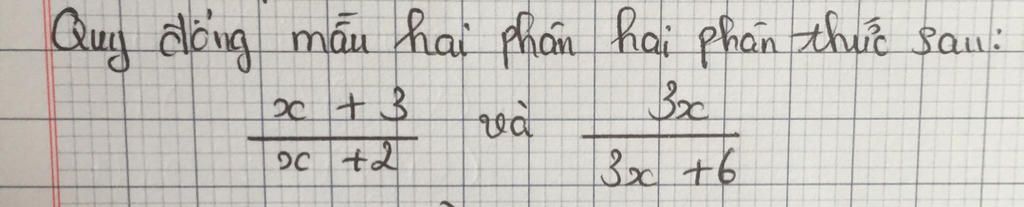 Quy đồng mẫu hai phân hai phân thức sau:
x + 3 và 3x
x + 2 3x + 6